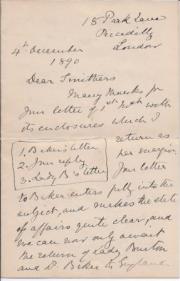 15 Park Lane
Piccadilly
London
4th December
1890
Dear Smithers
Many thanks for
your letter of 1st inst with
its enclosures which I
return as
per margin.
1. Baker's letter
2. Your reply
3. Lady B's letter
Your letter
to Baker enters fully into the
subject, and makes the state
of affairs quite clear, and
we can now only await
the return of Lady Burton
and Dr Baker to England.